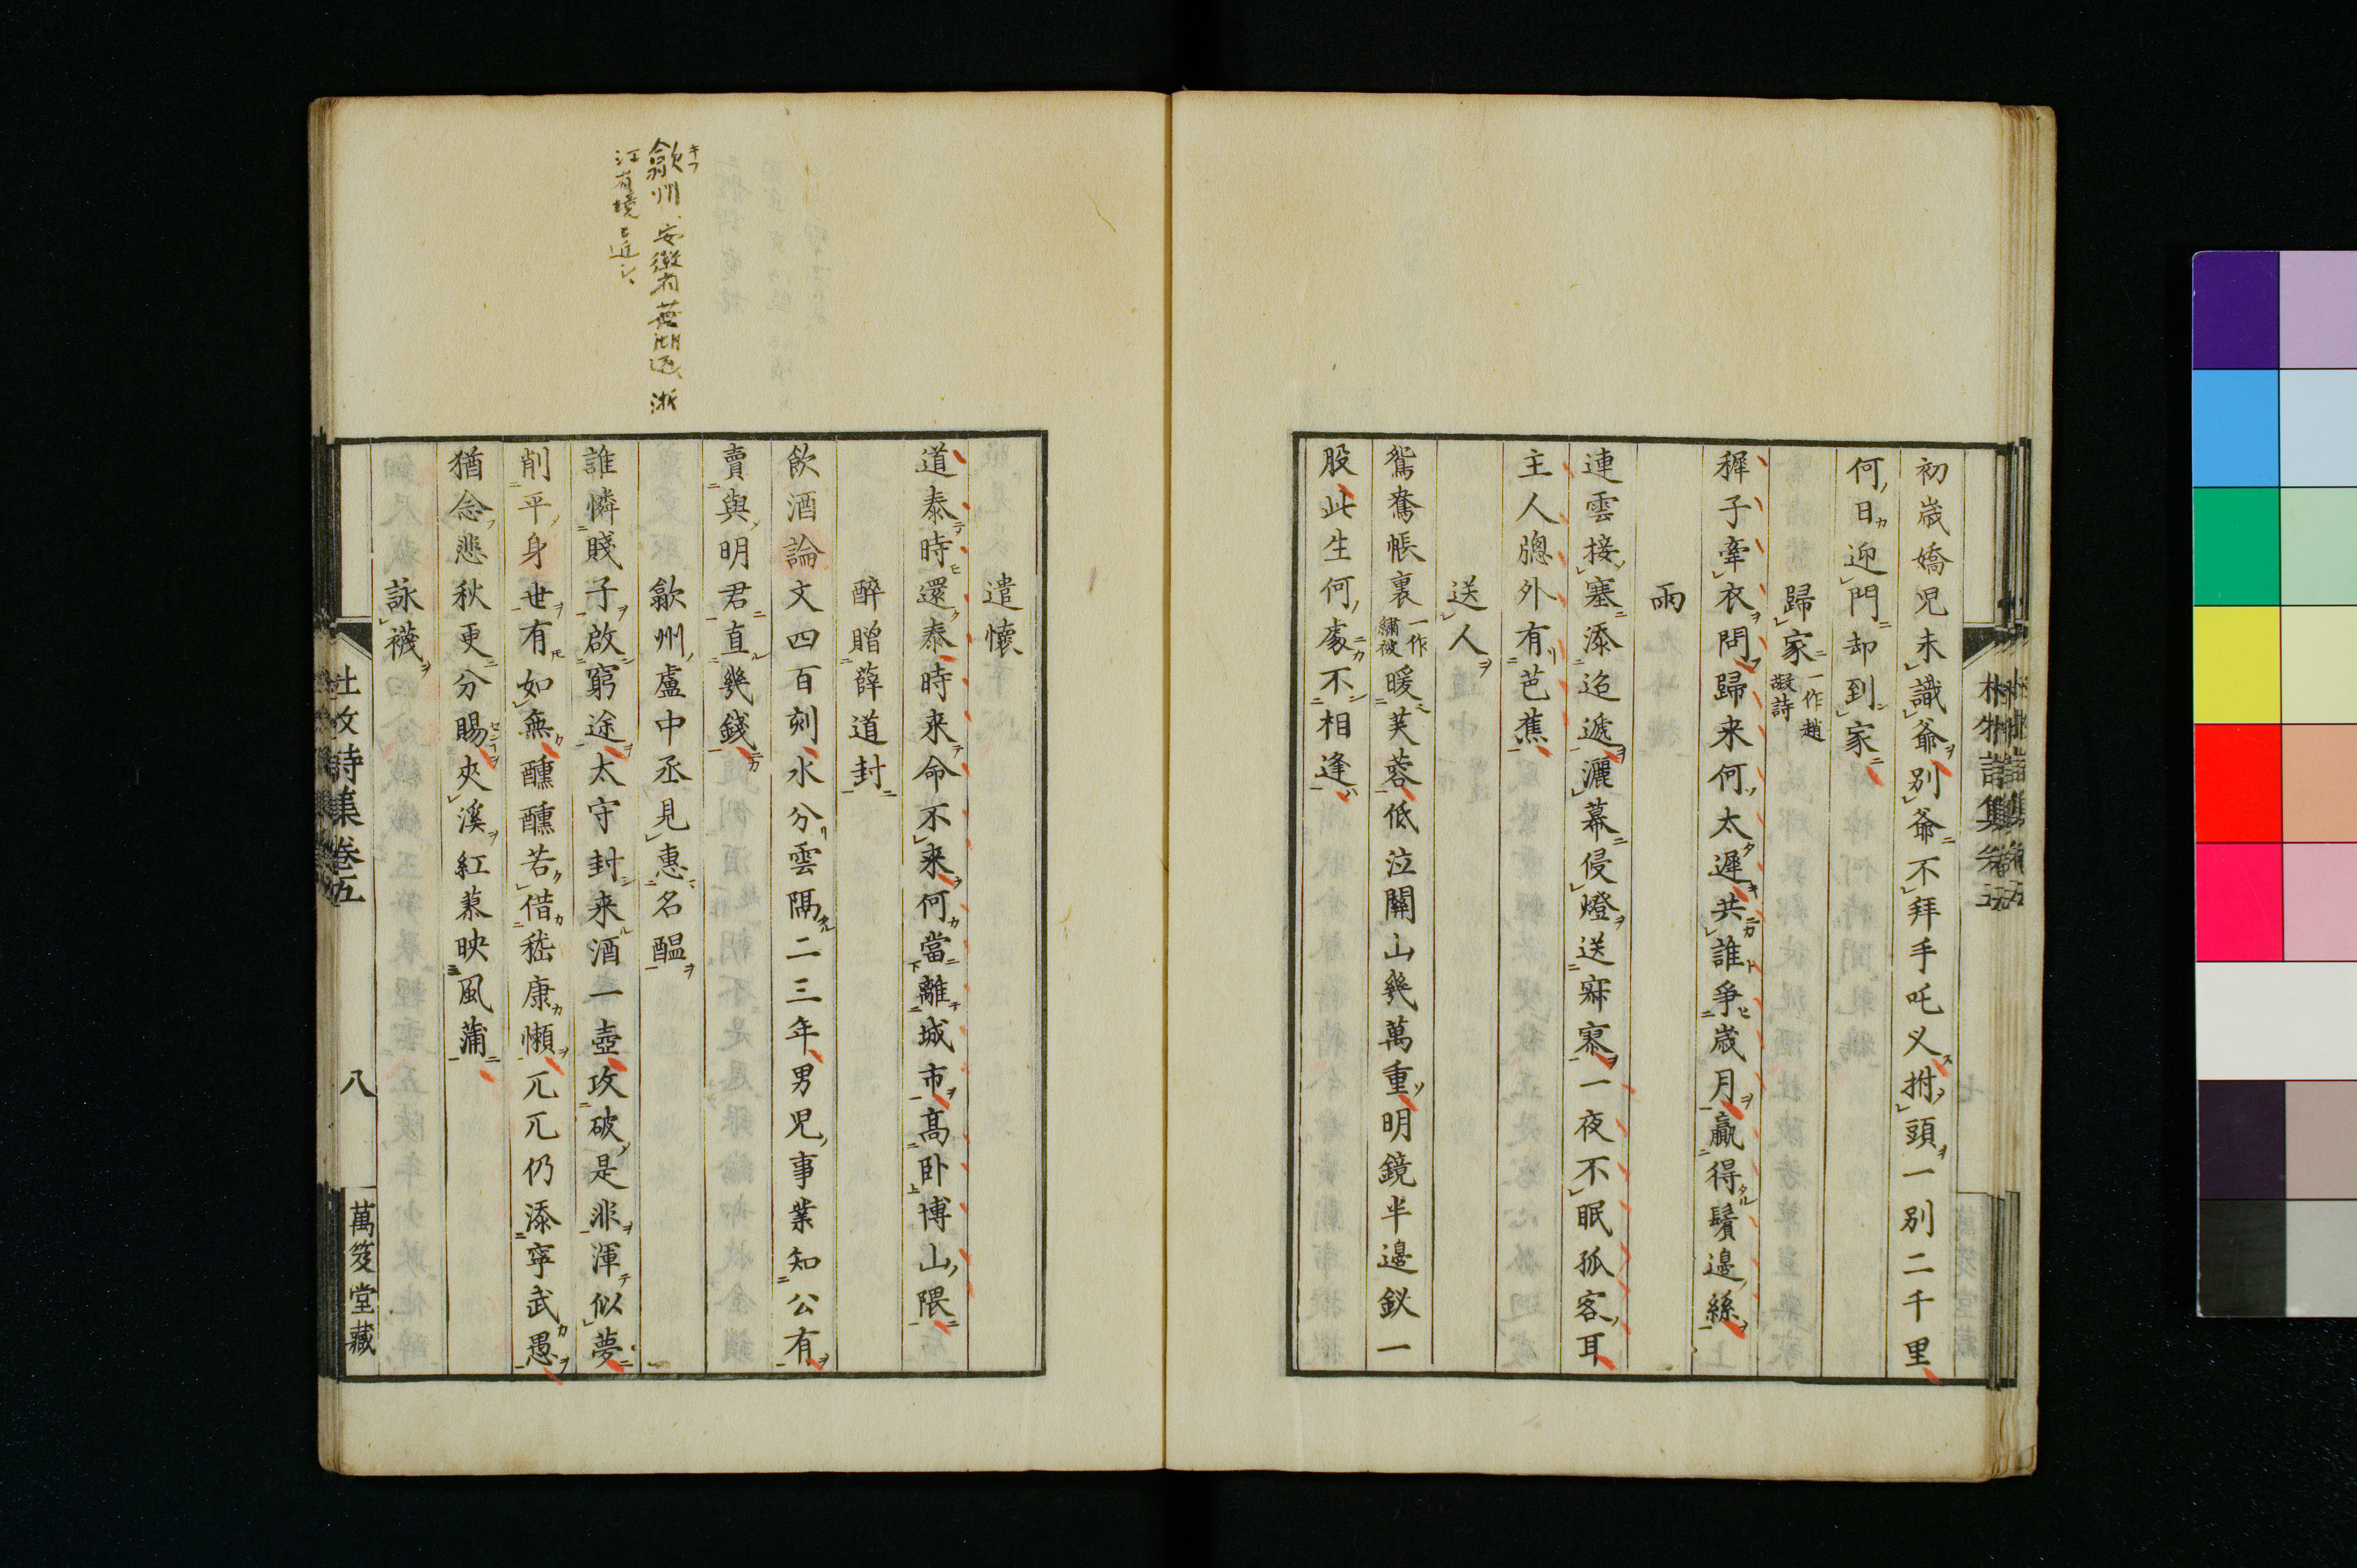 初歳嬌児未識爺別爺不拜手吒义拊頭一別二千里
何日迎門却到家
歸家一作趙嘏詩
穉子牽衣問歸来何太遲共誰爭歳月贏得鬢邊絲
雨
連雲接塞添迢遞灑幕侵燈送寂寥一夜不眠孤客耳
主人牕外有芭蕉
送人
鴛鴦帳裏一作繡被暖芙蓉低泣關山幾萬重明鏡半邊釵一
股此生何處不相逢
遣懷
道泰時還泰時来命不来何當離城市高卧博山隈
醉贈薛道封
飲酒論文四百刻水分雲隔二三年男児事業知公有
賣與明君直幾錢
歙州盧中丞見惠名醞
誰憐賤子啟窮途太守封来酒一壺攻破是非渾似夢
削平身世有如無醺醺若借嵇康懶兀兀仍添寧武愚
猶念悲秋更分賜夾溪紅蓼映風蒲
詠襪
杜牧詩集卷五
八
萬笈堂藏
歙州 安徽省蕪湖道、浙
江省境ニ近シ、